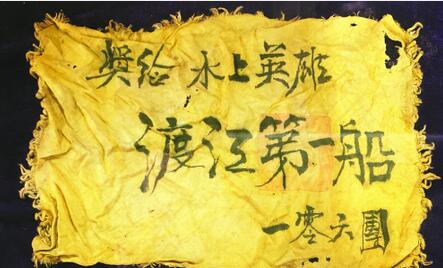 奬给 水上英雄
渡江第一船
一零六團